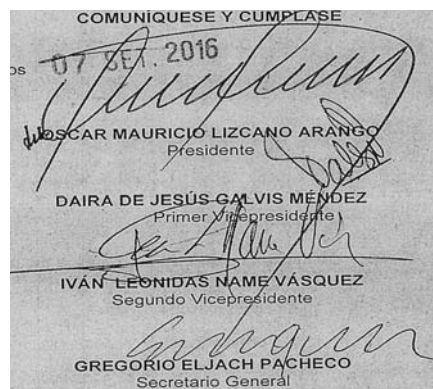 COMUNÍQUESE Y CUMPLASE
os 07 SET. 2016
OSCAR MAURICIO LIZCANO ARANGO
Presidente
DAIRA DE JESÚS GALVIS MÉNDEZ
Primer Vicepresidente
IVÁN LEONIDAS NAME VÁSQUEZ
Segundo Vicepresidente
GREGORIO ELJACH PACHECO
Secretario General